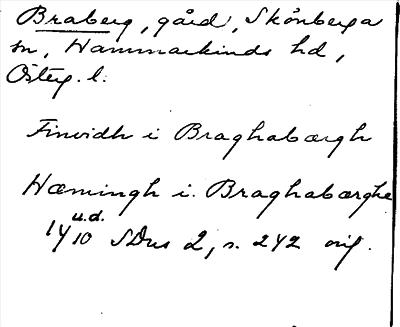 Braberg, gård, Skönberga
sn, Hammarkinds hd,
Österg. l.
Finvidh i Braghabærgh
Hæmingh i Braghabærghe
u.d.
14/10 SDns 2, s. 242 orig.